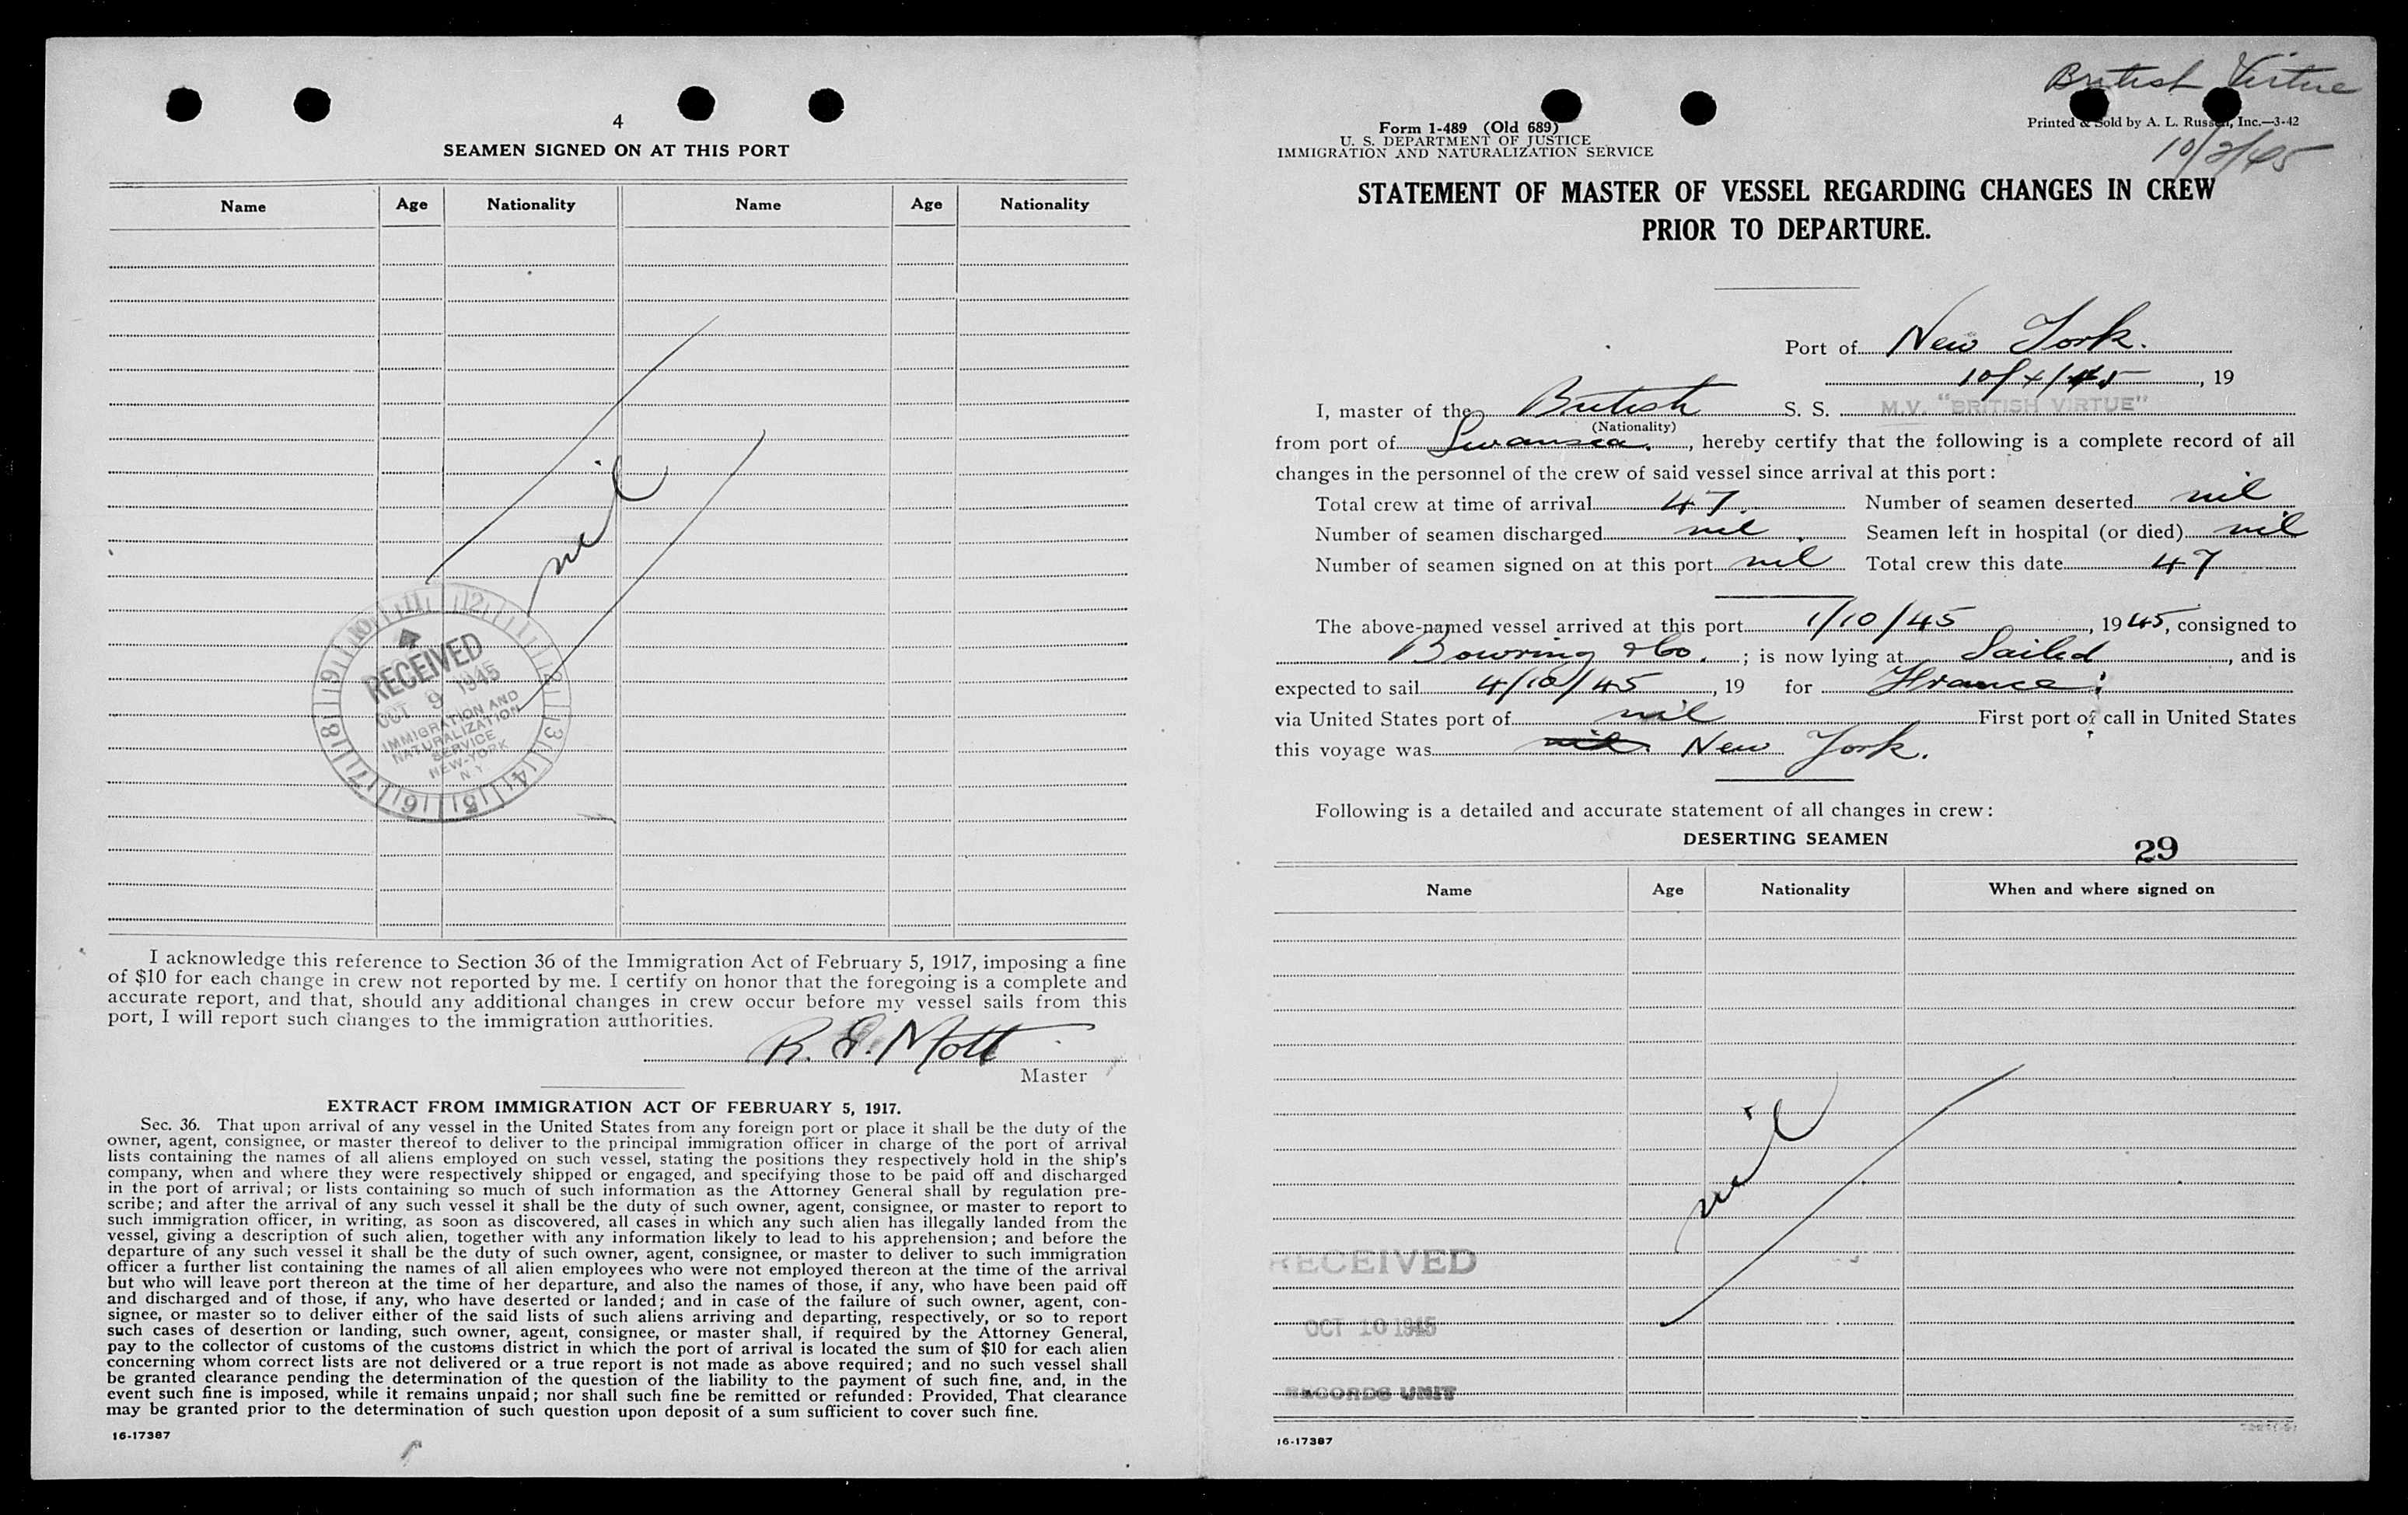 4
SEAMEN SIGNED ON AT THIS PORT
Name Age Nationality Name Age Nationality
nil
RECEIVED
OCT 9 1945
IMMIGRATION AND
NATURALIZATION
SERVICE
NEW-YORK
N Y
I acknowledge this reference to Section 36 of the Immigration Act of February 5, 1917, imposing a fine
of $10 for each change in crew not reported by me. I certify on honor that the foregoing is a complete and
accurate report, and that, should any additional changes in crew occur before my vessel sails from this
port, I will report such changes to the immigration authorities.
R. E. Mott
Master
EXTRACT FROM IMMIGRATION ACT OF FEBRUARY 5, 1917.
Sec. 36. That upon arrival of any vessel in the United States from any foreign port or place it shall be the duty of the
owner, agent, consignee, or master thereof to deliver to the principal immigration officer in charge of the port of arrival
lists containing the names of all aliens employed on such vessel, stating the positions they respectively hold in the ship's
company, when and where they were respectively shipped or engaged, and specifying those to be paid off and discharged
in the port of arrival; or lists containing so much of such information as the Attorney General shall by regulation pre-
scribe; and after the arrival of any such vessel it shall be the duty of such owner, agent, consignee, or master to report to
such immigration officer, in writing, as soon as discovered, all cases in which any such alien has illegally landed from the
vessel, giving a description of such alien, together with any information likely to lead to his apprehension; and before the
departure of any such vessel it shall be the duty of such owner, agent, consignee, or master to deliver to such immigration
officer a further list containing the names of all alien employees who were not employed thereon at the time of the arrival
but who will leave port thereon at the time of her departure, and also the names of those, if any, who have been paid off
and discharged and of those, if any, who have deserted or landed; and in case of the failure of such owner, agent, con-
signee, or master so to deliver either of the said lists of such aliens arriving and departing, respectively, or so to report
such cases of desertion or landing, such owner, agent, consignee, or master shall, if required by the Attorney General,
pay to the collector of customs of the customs district in which the port of arrival is located the sum of $10 for each alien
concerning whom correct lists are not delivered or a true report is not made as above required; and no such vessel shall
be granted clearance pending the determination of the question of the liability to the payment of such fine, and, in the
event such fine is imposed, while it remains unpaid; nor shall such fine be remitted or refunded: Provided, That clearance
may be granted prior to the determination of such question upon deposit of a sum sufficient to cover such fine.
16-17387
British Virtue
10/2/45
Form 1-489 (Old 689)
U. S. DEPARTMENT OF JUSTICE
IMMIGRATION AND NATURALIZATION SERVICE
Printed & Sold by A. L. Russell, Inc.—3-42
STATEMENT OF MASTER OF VESSEL REGARDING CHANGES IN CREW
PRIOR TO DEPARTURE.
Port of New York.
10/4/45, 19
I, master of the British S. S. M.V. "BRITISH VIRTUE"
(Nationality)
from port of Swansea., hereby certify that the following is a complete record of all
changes in the personnel of the crew of said vessel since arrival at this port:
Total crew at time of arrival 47. Number of seamen deserted nil
Number of seamen discharged nil Seamen left in hospital (or died) nil
Number of seamen signed on at this port nil Total crew this date 47
The above-named vessel arrived at this port 1/10/45, 1945, consigned to
Bowring & Co.; is now lying at Sailed, and is
expected to sail 4/10/45, 19 for France.
via United States port of nil First port of call in United States
this voyage was nil. New York.
Following is a detailed and accurate statement of all changes in crew:
DESERTING SEAMEN
29
Name Age Nationality When and where signed on
nil
RECEIVED
OCT 10 1945
RECORDS UNIT
16-17387